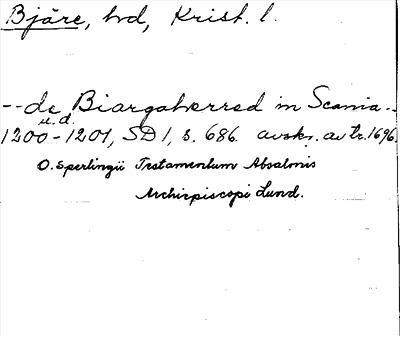 Bjäre, hd, Krist. l.
--de Biargaherred in Scania--
u.d.
1200-1201, SD 1, s. 686. avskr. av tr. 1696.
O. Sperlingii Testamentum Absalonis
Archiepiscopi Lund.